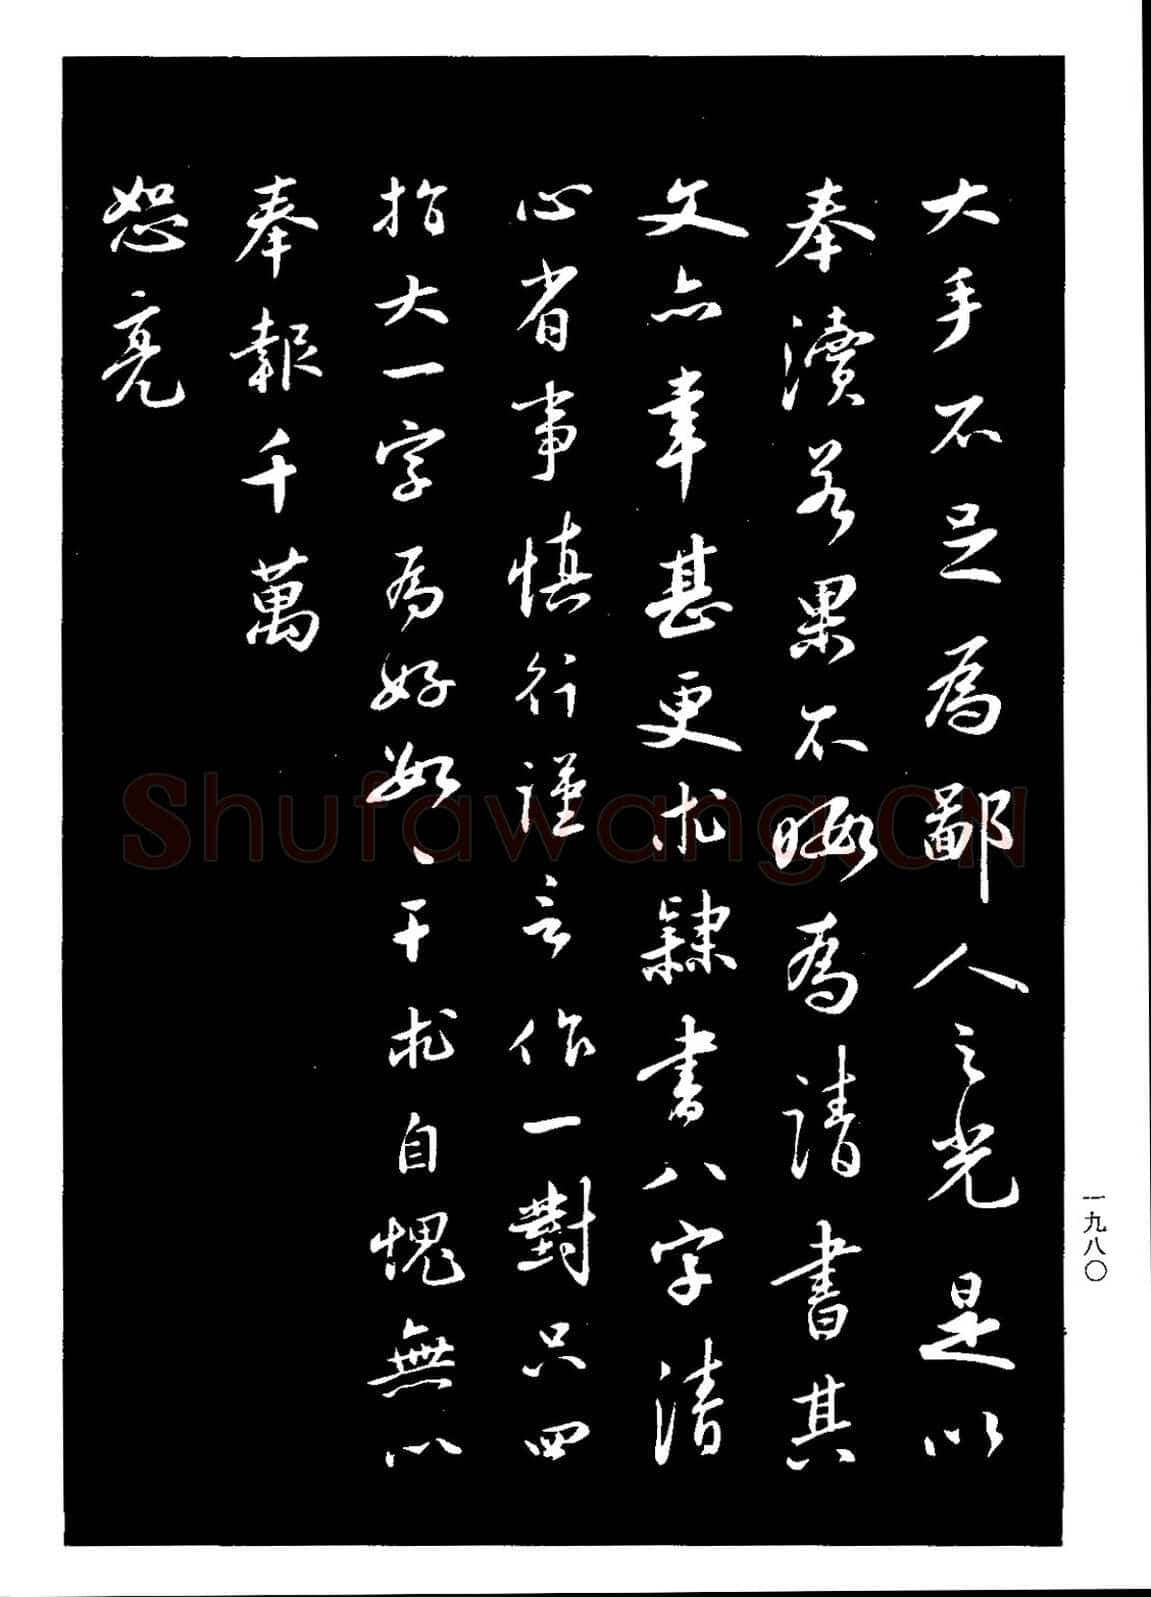 大手不足為鄙人之光是以
奉瀆若果不暇為請書其
文亦幸甚更求隸書八字清
心省事慎行謹言作一對只四
指大一字為好如〻干求自愧無以
奉報千萬
恕亮
一九八〇
Shufawang.CN